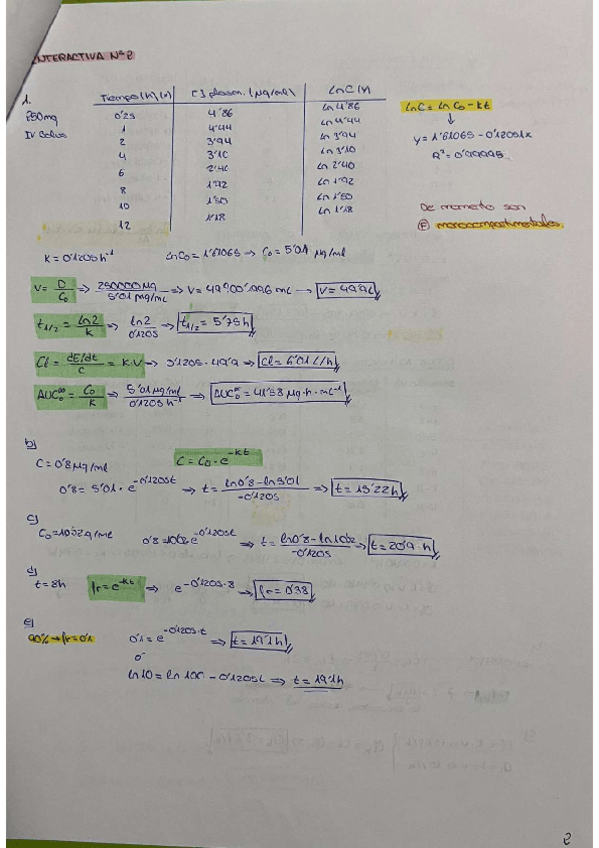 INTERACTIVA Nº 2
1.
250mg
IV Bolus
Tiempo (h) (x) [ ] plasm. (μg/ml) LnC (y)
0'25 4'86 ln 4'86
1 4'44 ln 4'44
2 3'94 ln 3'94
4 3'10 ln 3'10
6 2'40 ln 2'40
8 1'92 ln 1'92
10 1'50 ln 1'50
12 1'18 ln 1'18
lnC = ln C0 - kt
↓
y = 1'61065 - 0'12051x
R² = 0'99995
De momento son
(F) monocompartimentales
K = 0'1205 h⁻¹ lnC0 = 1'61065 → C0 = 5'01 μg/ml
V = D/C0 ⇒ 250000 μg / 5'01 μg/ml ⇒ V = 49900'1996 mL → V = 49'9L
t1/2 = ln2/K ⇒ ln2/0'1205 ⇒ t1/2 = 5'75h
Cl = dE/dt / C = K·V → 0'1205 · 49'9 → Cl = 6'01 L/h
AUC0∞ = C0/K ⇒ 5'01 μg/ml / 0'1205 h⁻¹ → AUC0∞ = 41'58 μg·h·mL⁻¹
b)
C = 0'8 μg/ml C = C0 · e^-kt
0'8 = 5'01 · e^-0'1205t → t = ln0'8 - ln5'01 / -0'1205 ⇒ t = 15'22h
c)
C0 = 10'02 g/ml 0'8 = 10'02 e^-0'1205t → t = ln0'8 - ln10'02 / -0'1205 → t = 20'9 h
d)
t = 8h fr = e^-kt ⇒ e^-0'1205·8 → fr = 0'38
e)
90% → fr = 0'1 0'1 = e^-0'1205·t ⇒ t = 19'1h
o
ln10 = ln 100 - 0'1205t ⇒ t = 19'1h
2